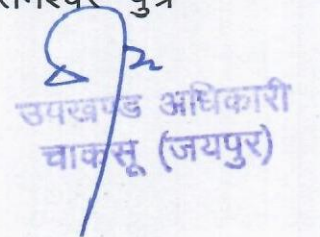 पुत्र
उपखण्ड अधिकारी
चाकसू (जयपुर)